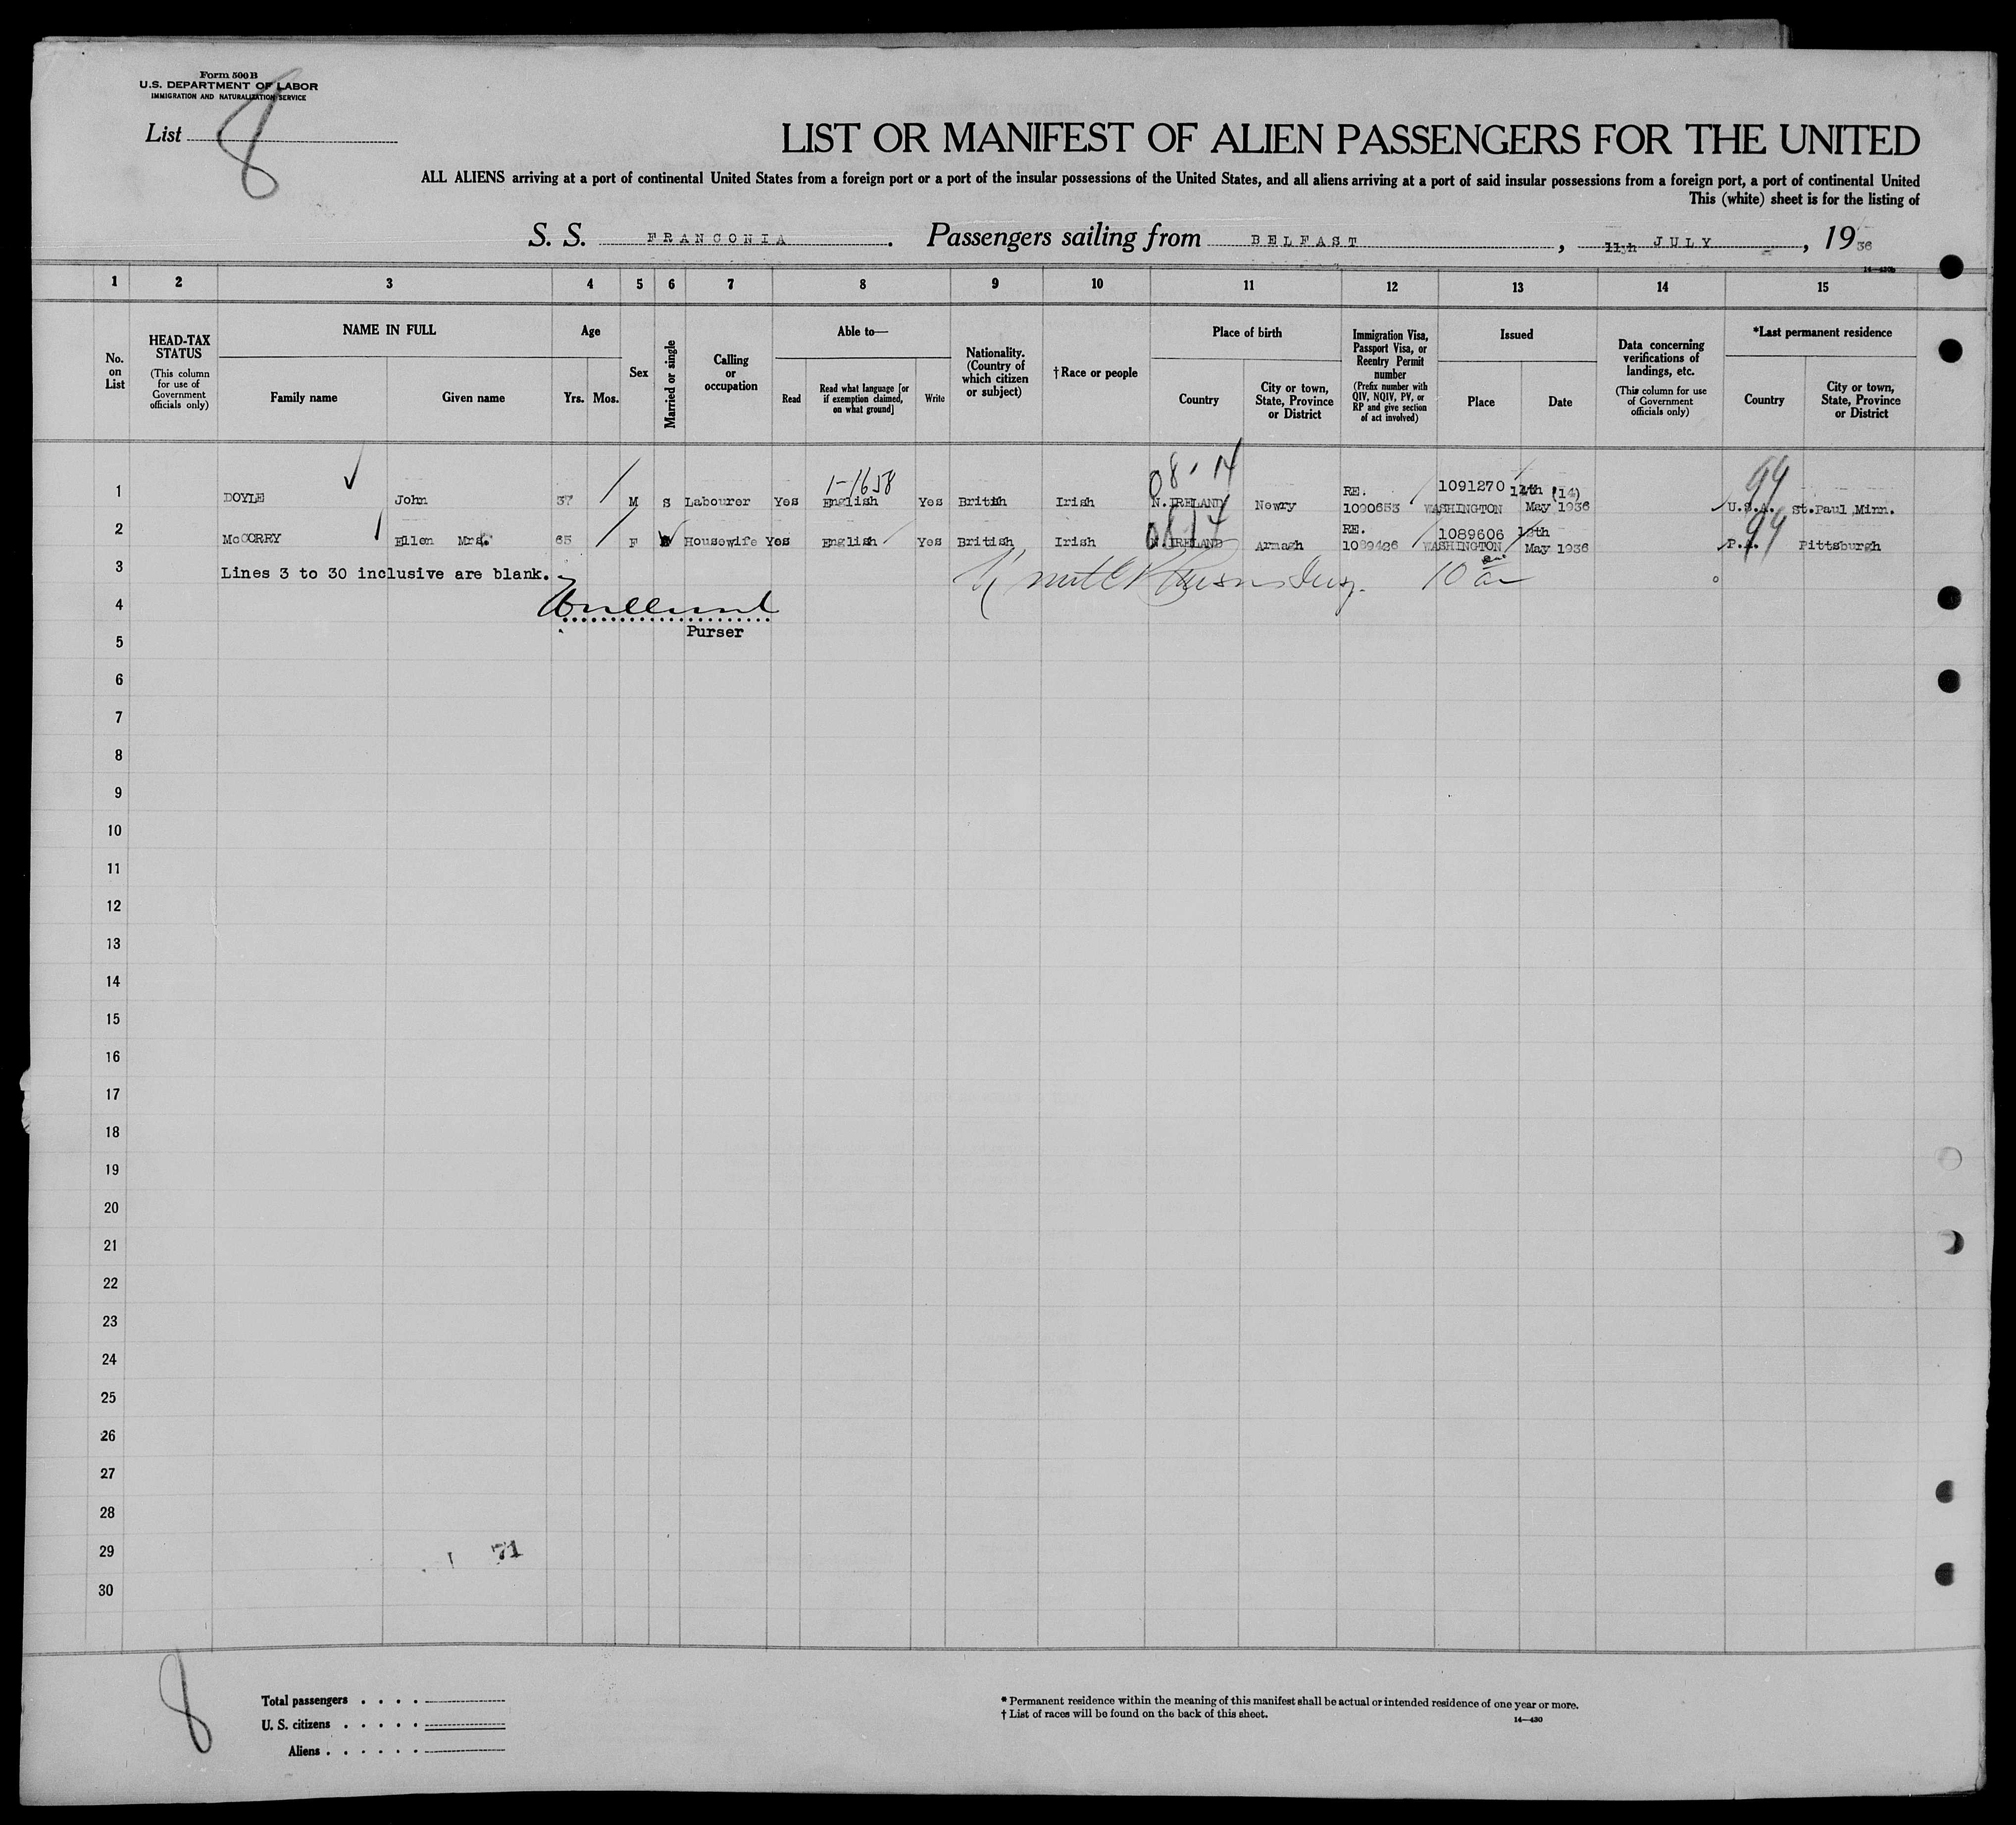 Form 500 B
U.S. DEPARTMENT OF LABOR
IMMIGRATION AND NATURALIZATION SERVICE
List 8
LIST OR MANIFEST OF ALIEN PASSENGERS FOR THE UNITED
ALL ALIENS arriving at a port of continental United States from a foreign port or a port of the insular possessions of the United States, and all aliens arriving at a port of said insular possessions from a foreign port, a port of continental United
This (white) sheet is for the listing of
S. S. FRANCONIA . Passengers sailing from BELFAST , 11th JULY , 1936
14—430b
1 2 3 4 5 6 7 8 9 10 11 12 13 14 15
No. on List
HEAD-TAX STATUS
(This column for use of Government officials only)
NAME IN FULL
Family name Given name
Age
Yrs. Mos.
Sex
Married or single
Calling or occupation
Able to—
Read
Read what language [or if exemption claimed, on what ground]
Write
Nationality. (Country of which citizen or subject)
†Race or people
Place of birth
Country
City or town, State, Province or District
Immigration Visa, Passport Visa, or Reentry Permit number
(Prefix number with QIV, NQIV, PV, or RP and give section of act involved)
Issued
Place Date
Data concerning verifications of landings, etc.
(This column for use of Government officials only)
*Last permanent residence
Country
City or town, State, Province or District
1-1658 08-14 99
RE. 1091270 14th (14)
1 DOYLE John 37 M S Labourer Yes English Yes British Irish N. IRELAND Newry 1090653 WASHINGTON May 1936 U.S.A. St.Paul Minn.
0814 99
RE. 1089606 18th
2 McCORRY Ellen Mrs. 65 F Housewife Yes English Yes British Irish N. IRELAND Armagh 1089426 WASHINGTON May 1936 P.A. Pittsburgh
3 Lines 3 to 30 inclusive are blank. 10
4
5 Purser
6
7
8
9
10
11
12
13
14
15
16
17
18
19
20
21
22
23
24
25
26
27
28
29 71
30
8
Total passengers . . . .
U. S. citizens . . . . .
Aliens . . . . . .
* Permanent residence within the meaning of this manifest shall be actual or intended residence of one year or more.
† List of races will be found on the back of this sheet.
14—430